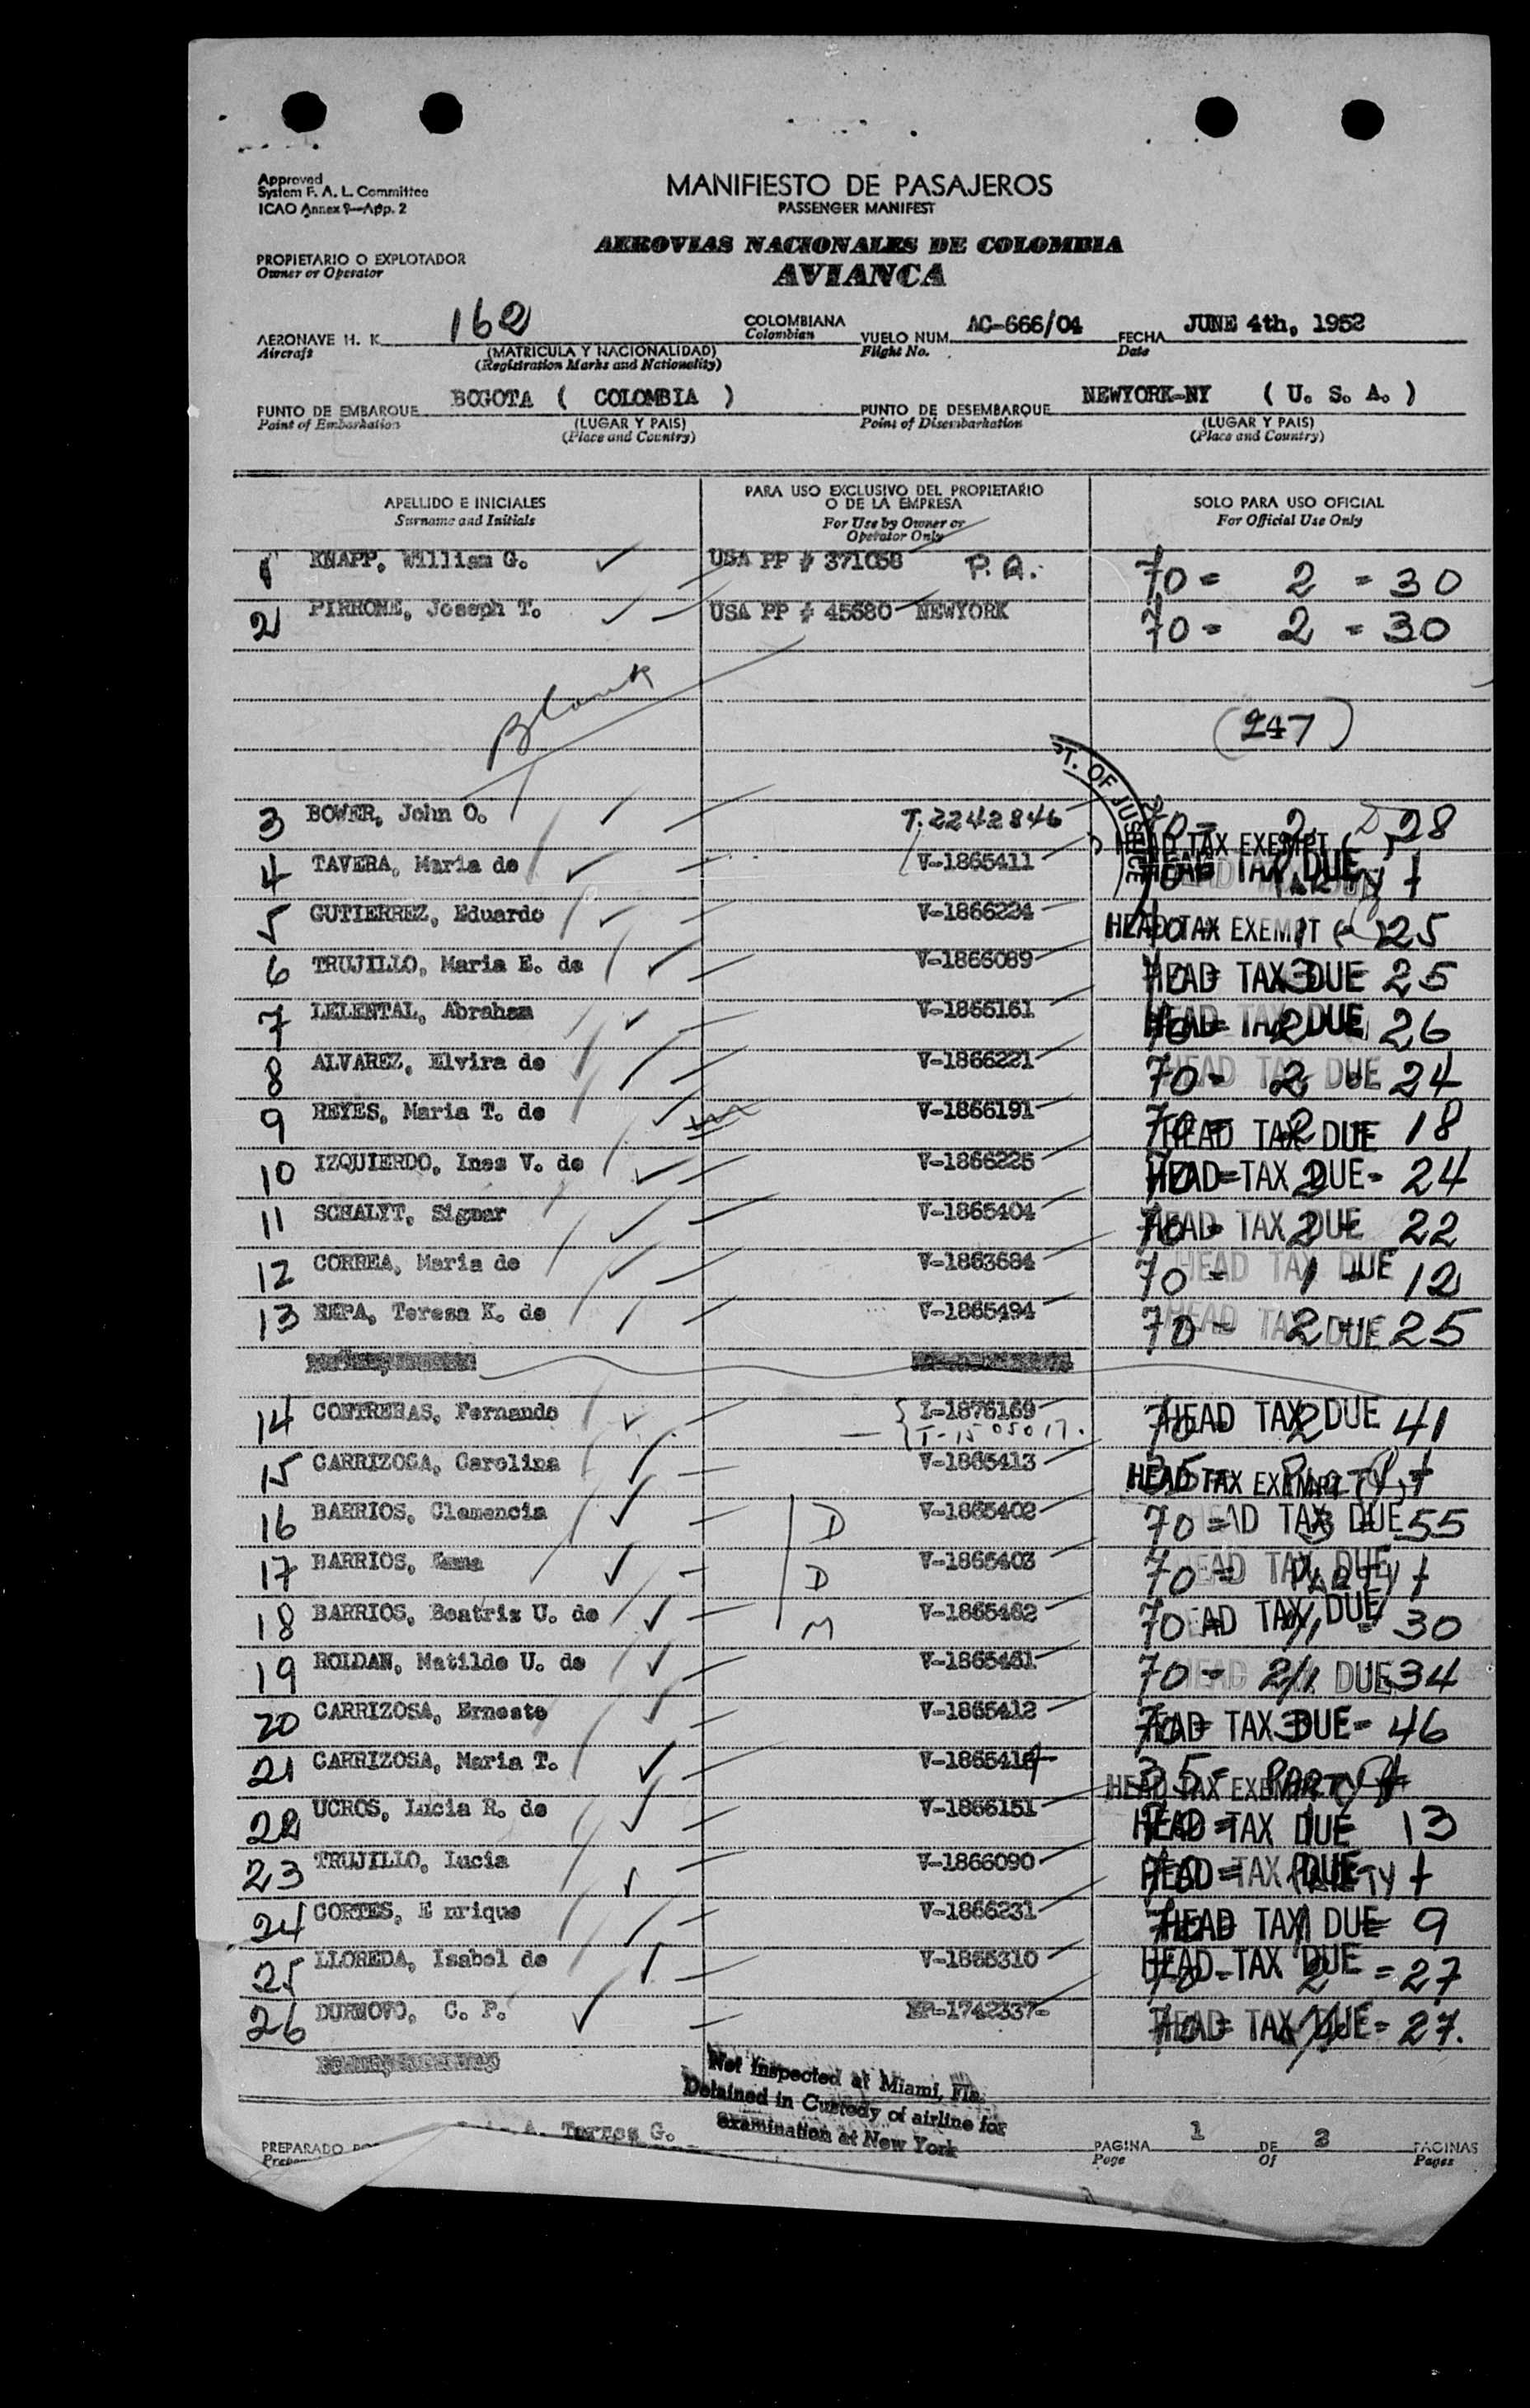 Approved
System F. A. L. Committee
ICAO Annex 9—App. 2
MANIFIESTO DE PASAJEROS
PASSENGER MANIFEST
AEROVIAS NACIONALES DE COLOMBIA
AVIANCA
PROPIETARIO O EXPLOTADOR
Owner or Operator
AERONAVE H. K. 162 COLOMBIANA VUELO NUM. AC-666/04 FECHA JUNE 4th, 1952
Aircraft (MATRICULA Y NACIONALIDAD) Colombian Flight No. Date
(Registration Marks and Nationality)
PUNTO DE EMBARQUE BOGOTA ( COLOMBIA ) PUNTO DE DESEMBARQUE NEWYORK-NY ( U. S. A. )
Point of Embarkation (LUGAR Y PAIS) Point of Disembarkation (LUGAR Y PAIS)
(Place and Country) (Place and Country)
APELLIDO E INICIALES PARA USO EXCLUSIVO DEL PROPIETARIO O DE LA EMPRESA SOLO PARA USO OFICIAL
Surname and Initials For Use by Owner or Operator Only For Official Use Only
1 KNAPP, William G. USA PP # 371058 P.A. 70 = 2 = 30
2 PIRRONE, Joseph T. USA PP # 45680 NEWYORK 70 = 2 = 30
Blank
(247)
T. OF JUSTICE
3 BOWER, John O. T.2242846 28
HEAD TAX EXEMPT
4 TAVERA, Maria de V-1865411 HEAD TAX DUE
5 GUTIERREZ, Eduardo V-1866224 HEAD TAX EXEMPT 25
6 TRUJILLO, Maria E. de V-1866089 HEAD TAX DUE 25
7 LELENTAL, Abraham V-1866161 HEAD TAX DUE 26
8 ALVAREZ, Elvira de V-1866221 70 - 2 HEAD TAX DUE 24
9 REYES, Maria T. de V-1866191 HEAD TAX DUE 18
10 IZQUIERDO, Ines V. de V-1866225 HEAD TAX DUE - 24
11 SCHALYT, Sigmar V-1865404 HEAD TAX DUE 22
12 CORREA, Maria de V-1863684 70 - 1 - 12 HEAD TAX DUE
13 REPA, Teresa K. de V-1865494 70 - 2 - 25 HEAD TAX DUE
14 CONTRERAS, Fernando I-1876169 HEAD TAX DUE 41
T-1505017.
15 CARRIZOSA, Carolina V-1865413 HEAD TAX EXEMPT
16 BARRIOS, Clemencia D V-1865402 70 = 3 HEAD TAX DUE 55
17 BARRIOS, D V-1865403 70 HEAD TAX DUE
18 BARRIOS, Beatriz U. de M V-1865462 70 HEAD TAX DUE 30
19 ROLDAN, Matilde U. de V-1865461 70 - 2/1 HEAD DUE 34
20 CARRIZOSA, Ernesto V-1865412 HEAD TAX DUE - 46
21 CARRIZOSA, Maria T. V-1865414 35 = HEAD TAX EXEMPT
22 UCROS, Lucia R. de V-1866151 HEAD TAX DUE 13
23 TRUJILLO, Lucia V-1866090 HEAD TAX DUE
24 CORTES, E nrique V-1866231 HEAD TAX DUE 9
25 LLOREDA, Isabel de V-1865310 HEAD TAX DUE = 27
26 DURNOVO, C. P. 1742337- HEAD TAX DUE = 27.
Not inspected at Miami, Fla.
Detained in Custody of airline for
examination at New York
PREPARADO A. Torres G. PAGINA 1 DE 2 PAGINAS
Page Of Pages